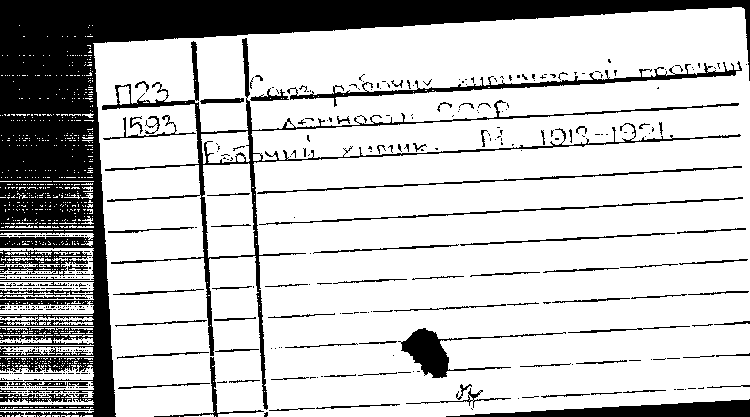 П23 Союз рабочих химической промыш
1593 ленности СССР
Рабочий химик. М., 1918-1921.